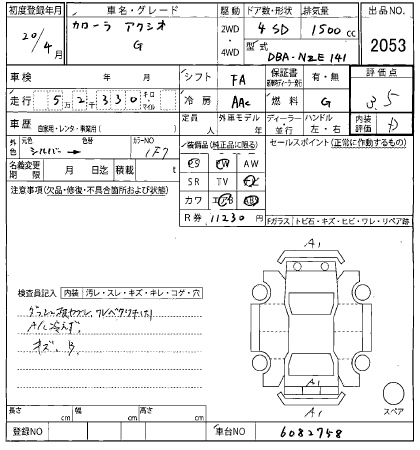 初度登録年月 車名・グレード 駆動 ドア数・形状 排気量 出品NO.
20/4月 カローラ アクシオ G 2WD・4WD 4 SD 1500cc 2053
型式 DBA-NZE141
車検 年 月 シフト FA 保証書 有・無 評価点
走行 5万2千330 キロ・マイル 冷房 AAC 燃料 G 3.5
車歴 自家用・レンタ・事業用( ) 定員 人 外車モデル 年 ディーラー・並行 ハンドル 左・右 内装評価 D
外色 元色 シルバー 色替 → カラーNO 1F7 装備品(純正品に限る) セールスポイント(正常に作動するもの)
PS PW AW
名義変更期限 月 日迄 積載 t SR TV
注意事項(欠品・修復・不具合箇所および状態) カワ エアB ABS
R券 11230円 Fガラス トビ石・キズ・ヒビ・ワレ・リペア跡
A1
検査員記入 内装 汚レ・スレ・キズ・キレ・コゲ・穴
A/C冷えず
キズ、B
A1
A1
スペア
長さ cm 幅 cm 高さ cm
登録NO 車台NO 6082748